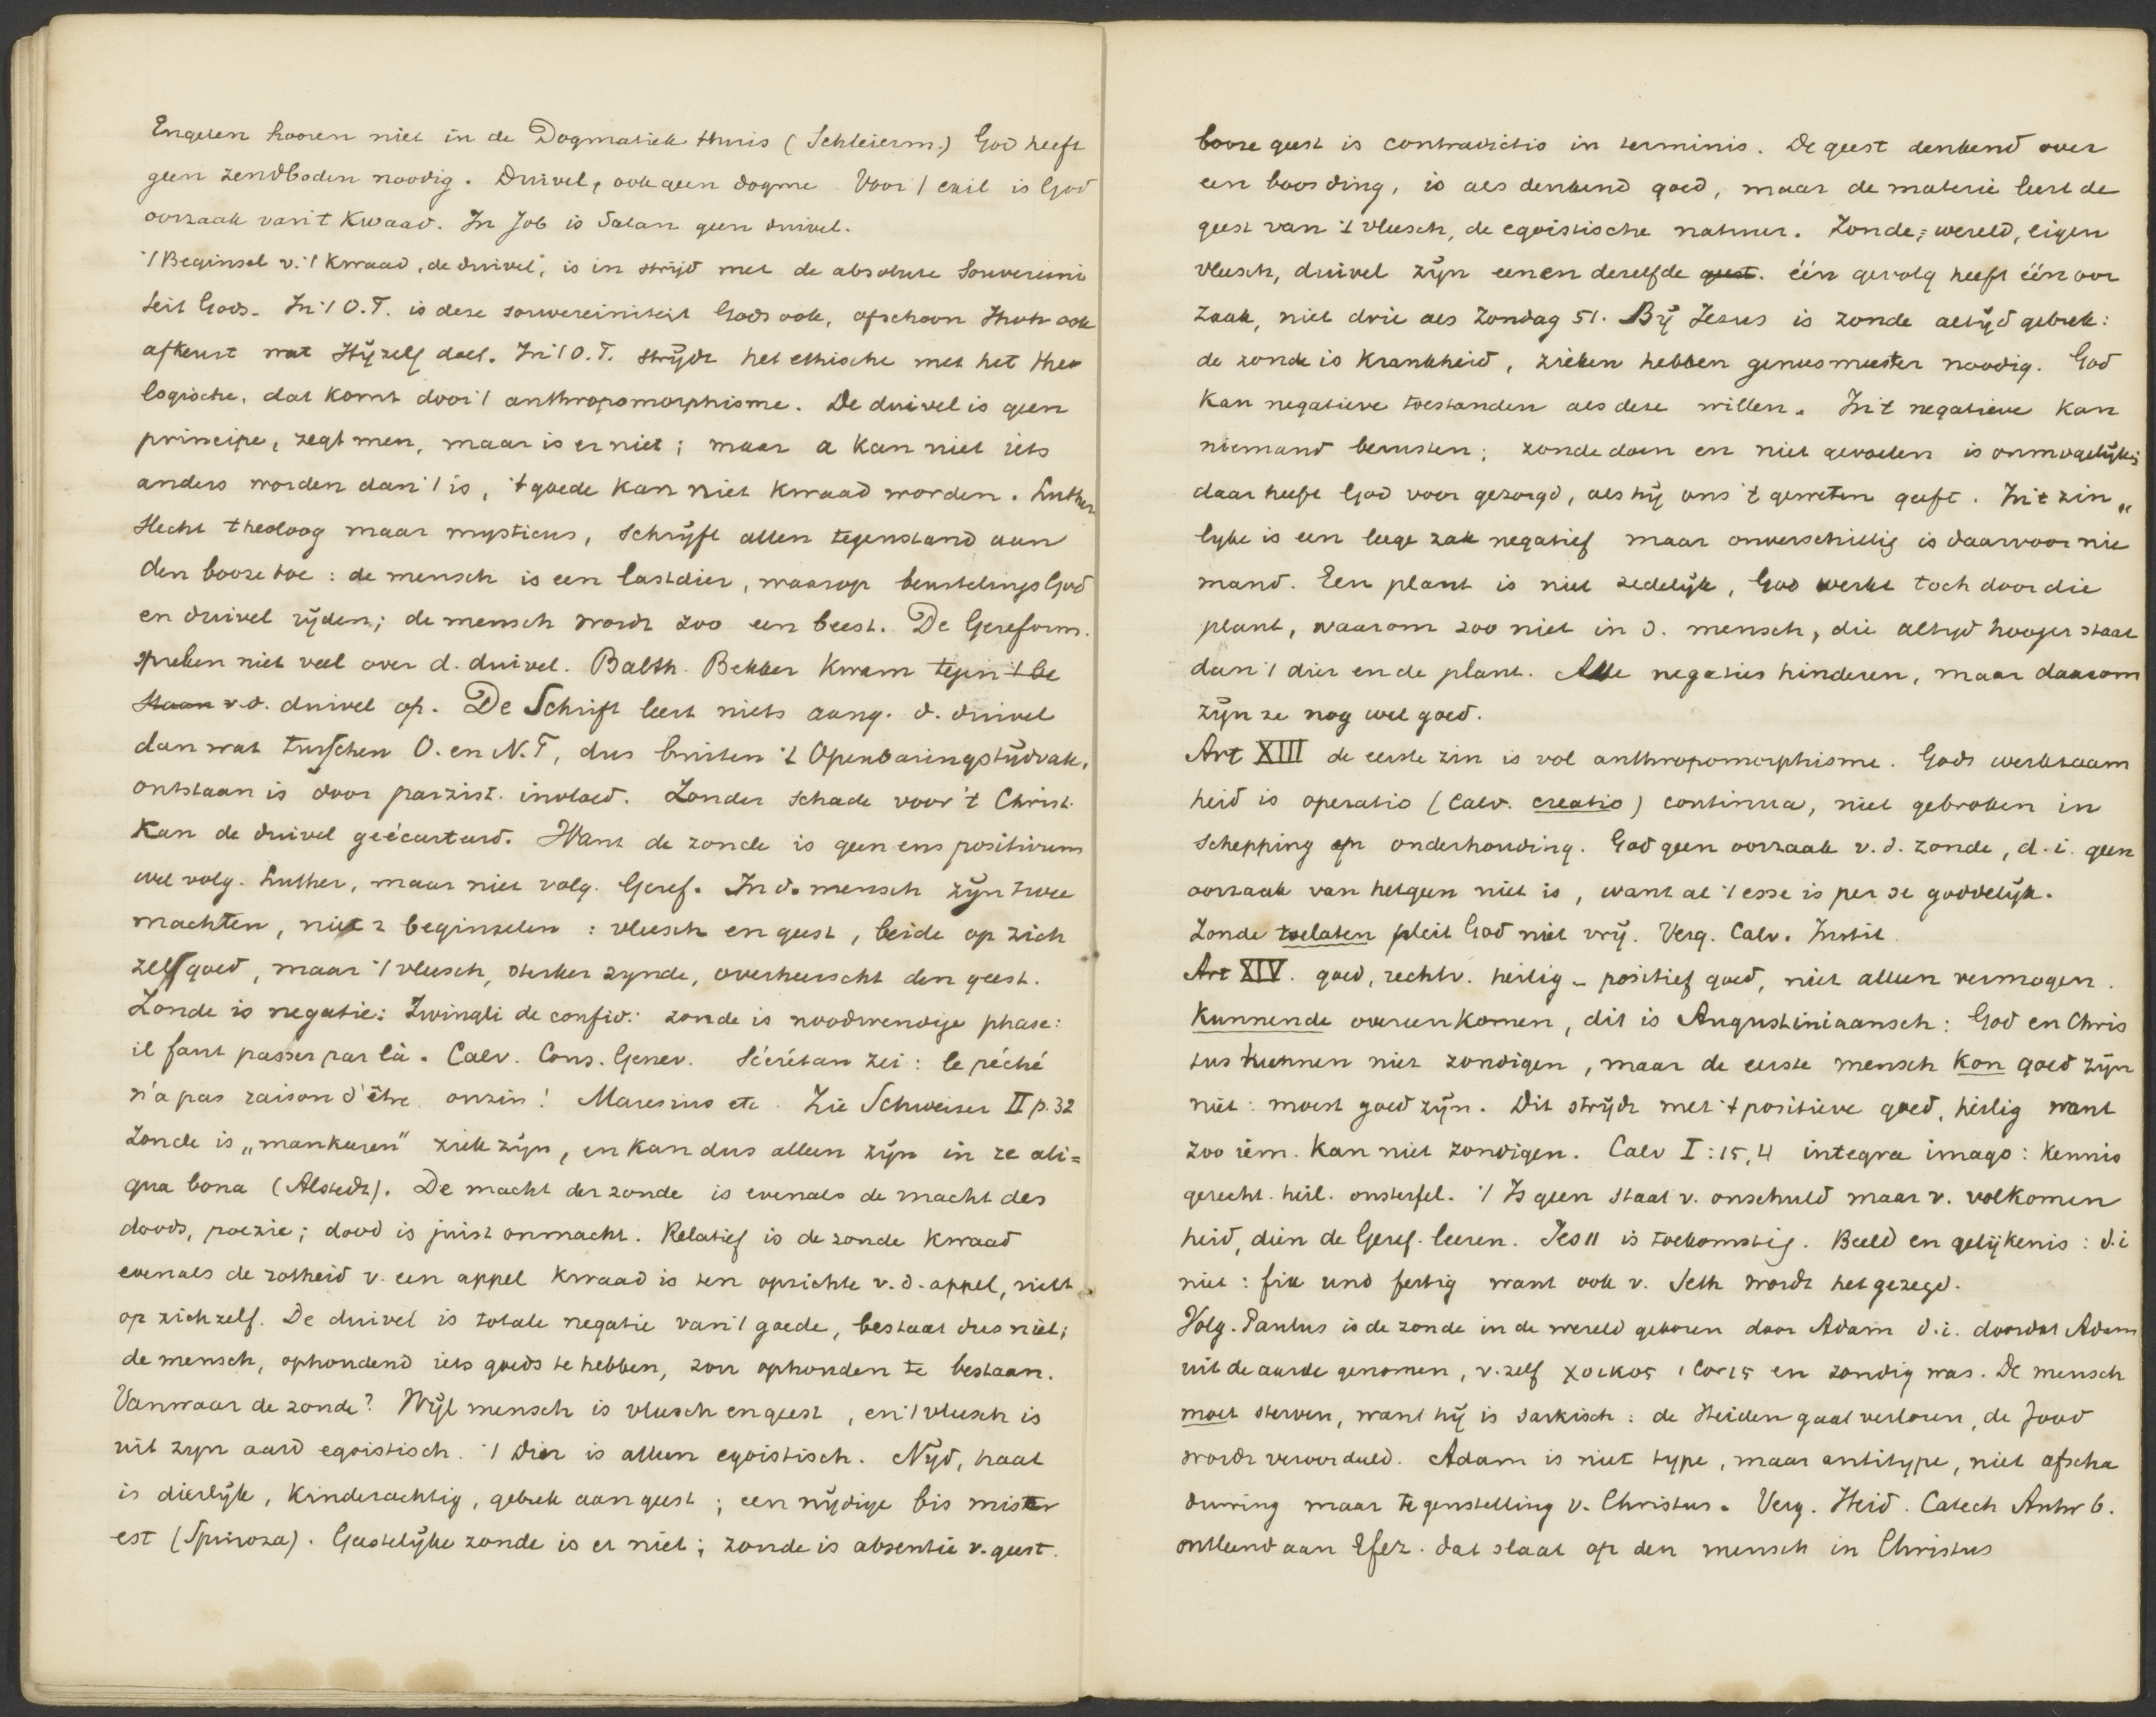 Engelen hooren niet in de Dogmatiek thuis (Schleierm.) God heeft
geen zendboden noodig. Duivel, ook geen dogme. Voor 't exil is God
oorzaak van 't Kwaad. In Job is Satan geen duivel.
't Beginsel v. 't kwaad, de duivel", is in strijd met de absolute Souvereini
teit Gods. In 't O.T. is deze souvereiniteit Gods ook, ofschoon Jhvh ook
afkeurt wat Hij zelf doet. In 't O.T. strijdt het ethische met het theo
logische, dat komt door 't anthropomorphisme. De duivel is geen
principe, zegt men, maar is er niet; maar a kan niet iets
anders worden dan 't is, 't goede kan niet kwaad worden. Luther
slecht theoloog maar mysticus, schrijft allen tegenstand aan
den booze toe: de mensch is een lastdier, waarop beurtelings God
en duivel rijden; de mensch wordt zoo een beest. De Gereform.
spreken niet veel over d. duivel. Balth. Bekker kwam tegen 't be
staan v.d. duivel op. De Schrift leert niets aang. d. duivel
dan wat tusschen O. en N.T, dus buiten 't Openbaringstijdvak,
ontstaan is door parzist. invloed. Zonder schade voor 't Christ.
kan de duivel geëcarteerd. Want de zonde is geen ens positivum
wel volg. Luther, maar niet volg. Geref. In d. mensch zijn twee
machten, niet 2 beginselen: vleesch en geest, beide op zich
zelf goed, maar 't vleesch, sterker zynde, overheerscht den geest.
Zonde is negatie: Zwingli de confid: zonde is noodwendige phase:
il faut passer par là. Calv. Cons. Genev. Sécrétan zei: le péché
n'a pas raison d'être. onzin! Maresius etc. Zie Schweizer II p. 32
Zonde is „mankeren" ziek zijn, en kan dus alleen zijn in re ali=
qua bona (Alstedt). De macht der zonde is evenals de macht des
doods, poezie; dood is juist onmacht. Relatief is de zonde kwaad
evenals de rotheid v. een appel kwaad is ten opzichte v.d. appel, niet
op zich zelf. De duivel is totale negatie van 't goede, bestaat dus niet;
de mensch, ophoudend iets goeds te hebben, zou ophouden te bestaan.
Vanwaar de zonde? Wijl mensch is vleesch en geest, en 't vleesch is
uit zyn aard egoistisch. 't Dier is alleen egoistisch. Nijd, haat
is dierlijk, kinderachtig, gebrek aan geest; een nijdige bis miser
est (Spinoza). Geestelijke zonde is er niet; zonde is absentie v. geest.
booze geest is contradictio in terminis. De geest denkend over
een boos ding, is als denkend goed, maar de materie leert de
geest van 't vleesch, de egoistische natuur. Zonde, wereld, eigen
vleesch, duivel zijn een en dezelfde geest. één gevolg heeft één oor
zaak, niet drie als Zondag 51. Bij Jezus is zonde altijd gebrek:
de zonde is krankheid, zieken hebben geneesmeester noodig. God
kan negatieve toestanden als deze willen. In 't negatieve kan
niemand berusten; zonde doen en niet gevoelen is onmogelijk;
daar heeft God voor gezorgd, als hij ons 't geweten geeft. In 't zin„
lyke is een leege zak negatief maar onverschillig is daarvoor nie
mand. Een plant is niet zedelijk, God werkt toch door die
plant, waarom zoo niet in d. mensch, die altijd hooger staat
dan 't dier en de plant. Alle negaties hinderen, maar daarom
zijn ze nog wel goed.
Art XIII de eerste zin is vol anthropomorphisme. Gods werkzaam
heid is operatio (Calv. creatio) continua, niet gebroken in
schepping en onderhouding. God geen oorzaak v.d. zonde, d.i. geen
oorzaak van hetgeen niet is, want al 't esse is per se goddelijk.
Zonde toelaten pleit God niet vrij. Verg. Calv. Instit.
Art XIV. goed, rechtv. heilig – positief goed, niet alleen vermogen.
Kunnende overeenkomen, dit is Augustiniaansch: God en Chris
tus kunnen niet zondigen, maar de eerste mensch kon goed zijn
niet: moest goed zijn. Dit strijdt met 't positieve goed, heilig want
zoo iem. kan niet zondigen. Calv I:15,4 integra imago: kennis
gerecht. heil. onsterfel. 't Is geen staat v. onschuld maar v. volkomen
heid, dien de Geref. leeren. Jes 11 is toekomstig. Beeld en gelijkenis: d.i
niet: fix und fertig want ook v. Seth wordt het gezegd.
Volg. Paulus is de zonde in de wereld gekomen door Adam d.i. doordat Adam
uit de aarde genomen, v. zelf χοικος 1 Cor 15 en zondig was. De mensch
moet sterven, want hij is sarkisch: de Heiden gaat verloren, de Jood
wordt veroordeeld. Adam is niet type, maar antitype, niet afscha
duwing maar tegenstelling v. Christus. Verg. Heid. Catech Antw 6.
ontleend aan Efez. dat slaat op den mensch in Christus